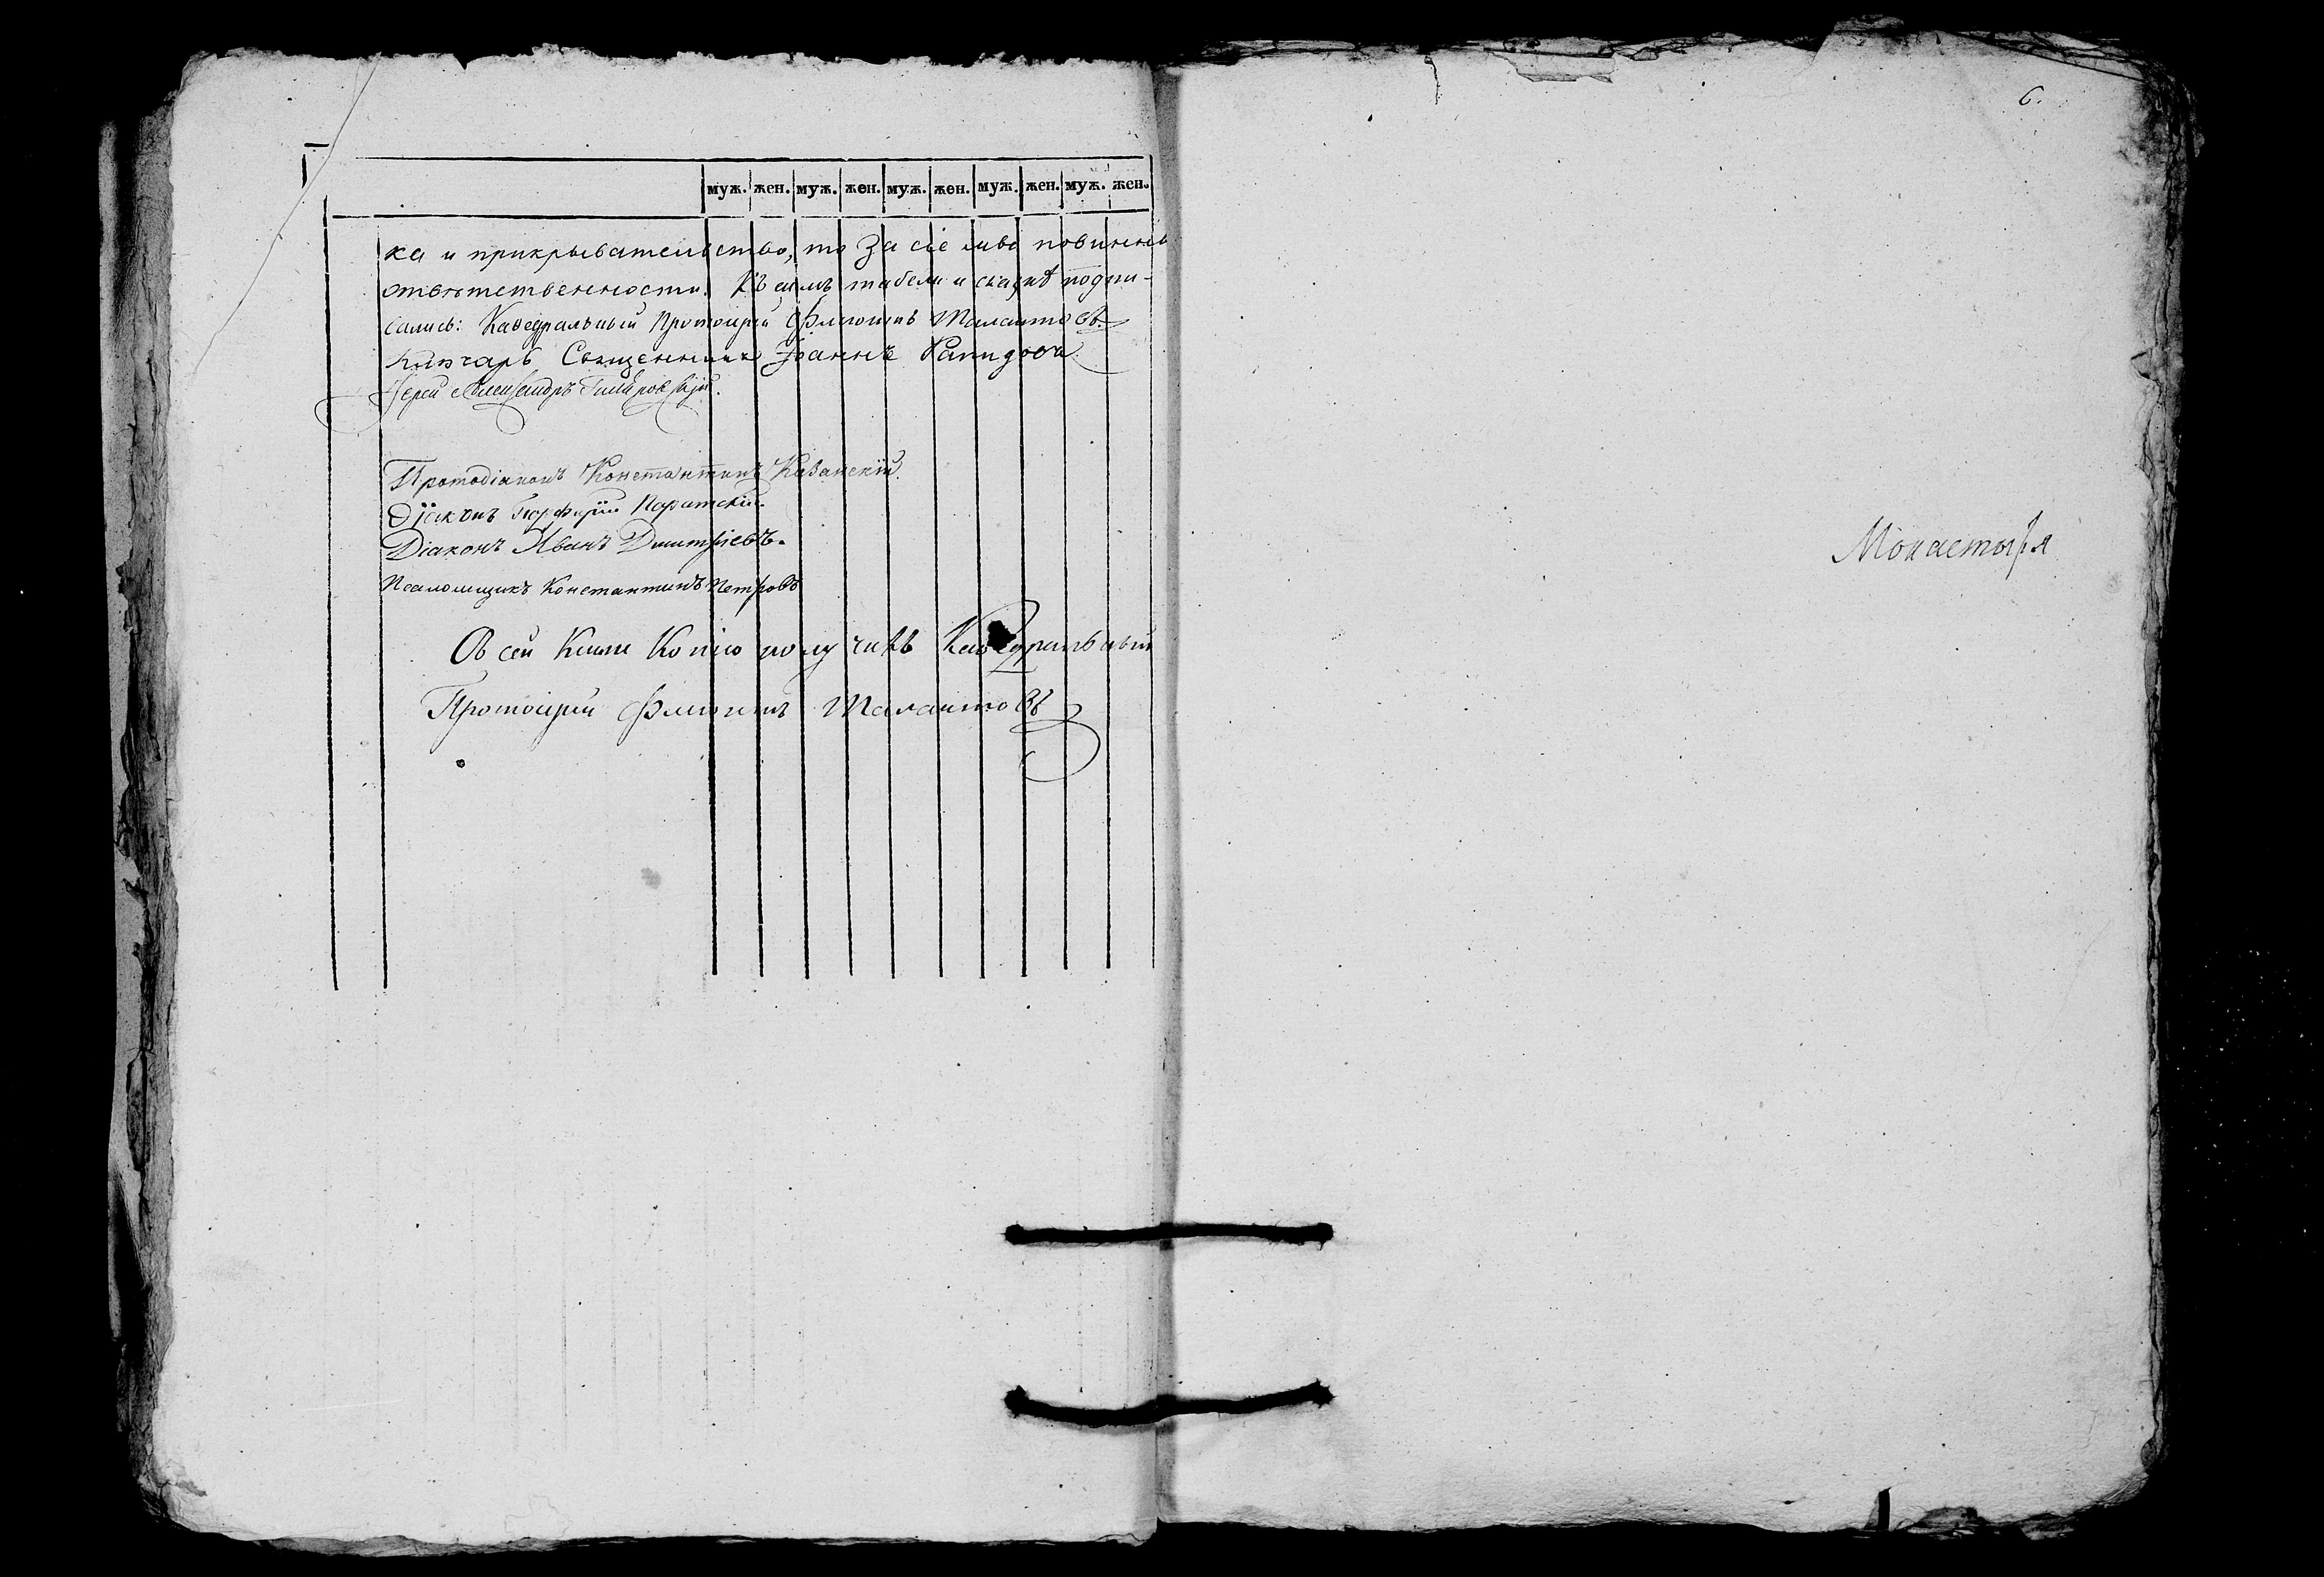 6.
муж. жен. муж. жен. муж. жен. муж. жен. муж. жен.
ка и прикрывательство, то за сіе мы повинны
отвѣтственности. Къ симъ табели и сказкѣ подпи-
сались: Каѳедральный Протоіерей Филиппъ Талантовъ
Ключарь Священникъ Іоаннъ Рапидовъ
Іерей Александръ
Протодіаконъ Константинъ Казанскій.
Діаконъ Порфирій Паратскій.
Діаконъ Иванъ Дмитріевъ.
Псаломщикъ Константинъ Петровъ
Съ сей Копію получилъ Каѳедральный
Протоіерей Филиппъ Талантовъ
Монастыря